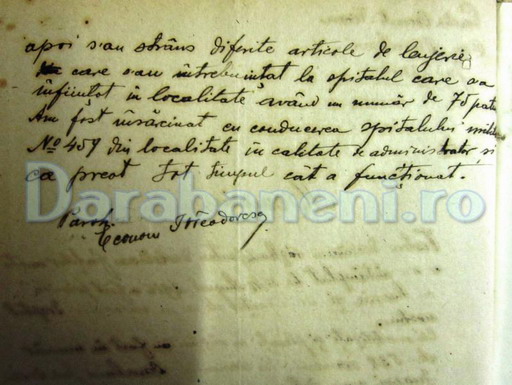 apoi s'au strâns diferite articole de lenjerie,
care s'au întrebuințat la spitalul care s'a
înființat în localitate având un număr de 75 pat
Am fost însărcinat cu conducerea spitalului mili
No 459 din localitate în calitate de administrator și
ca preot tot timpul cât a funcționat.
Darabaneni.ro
Paroh,
Econom